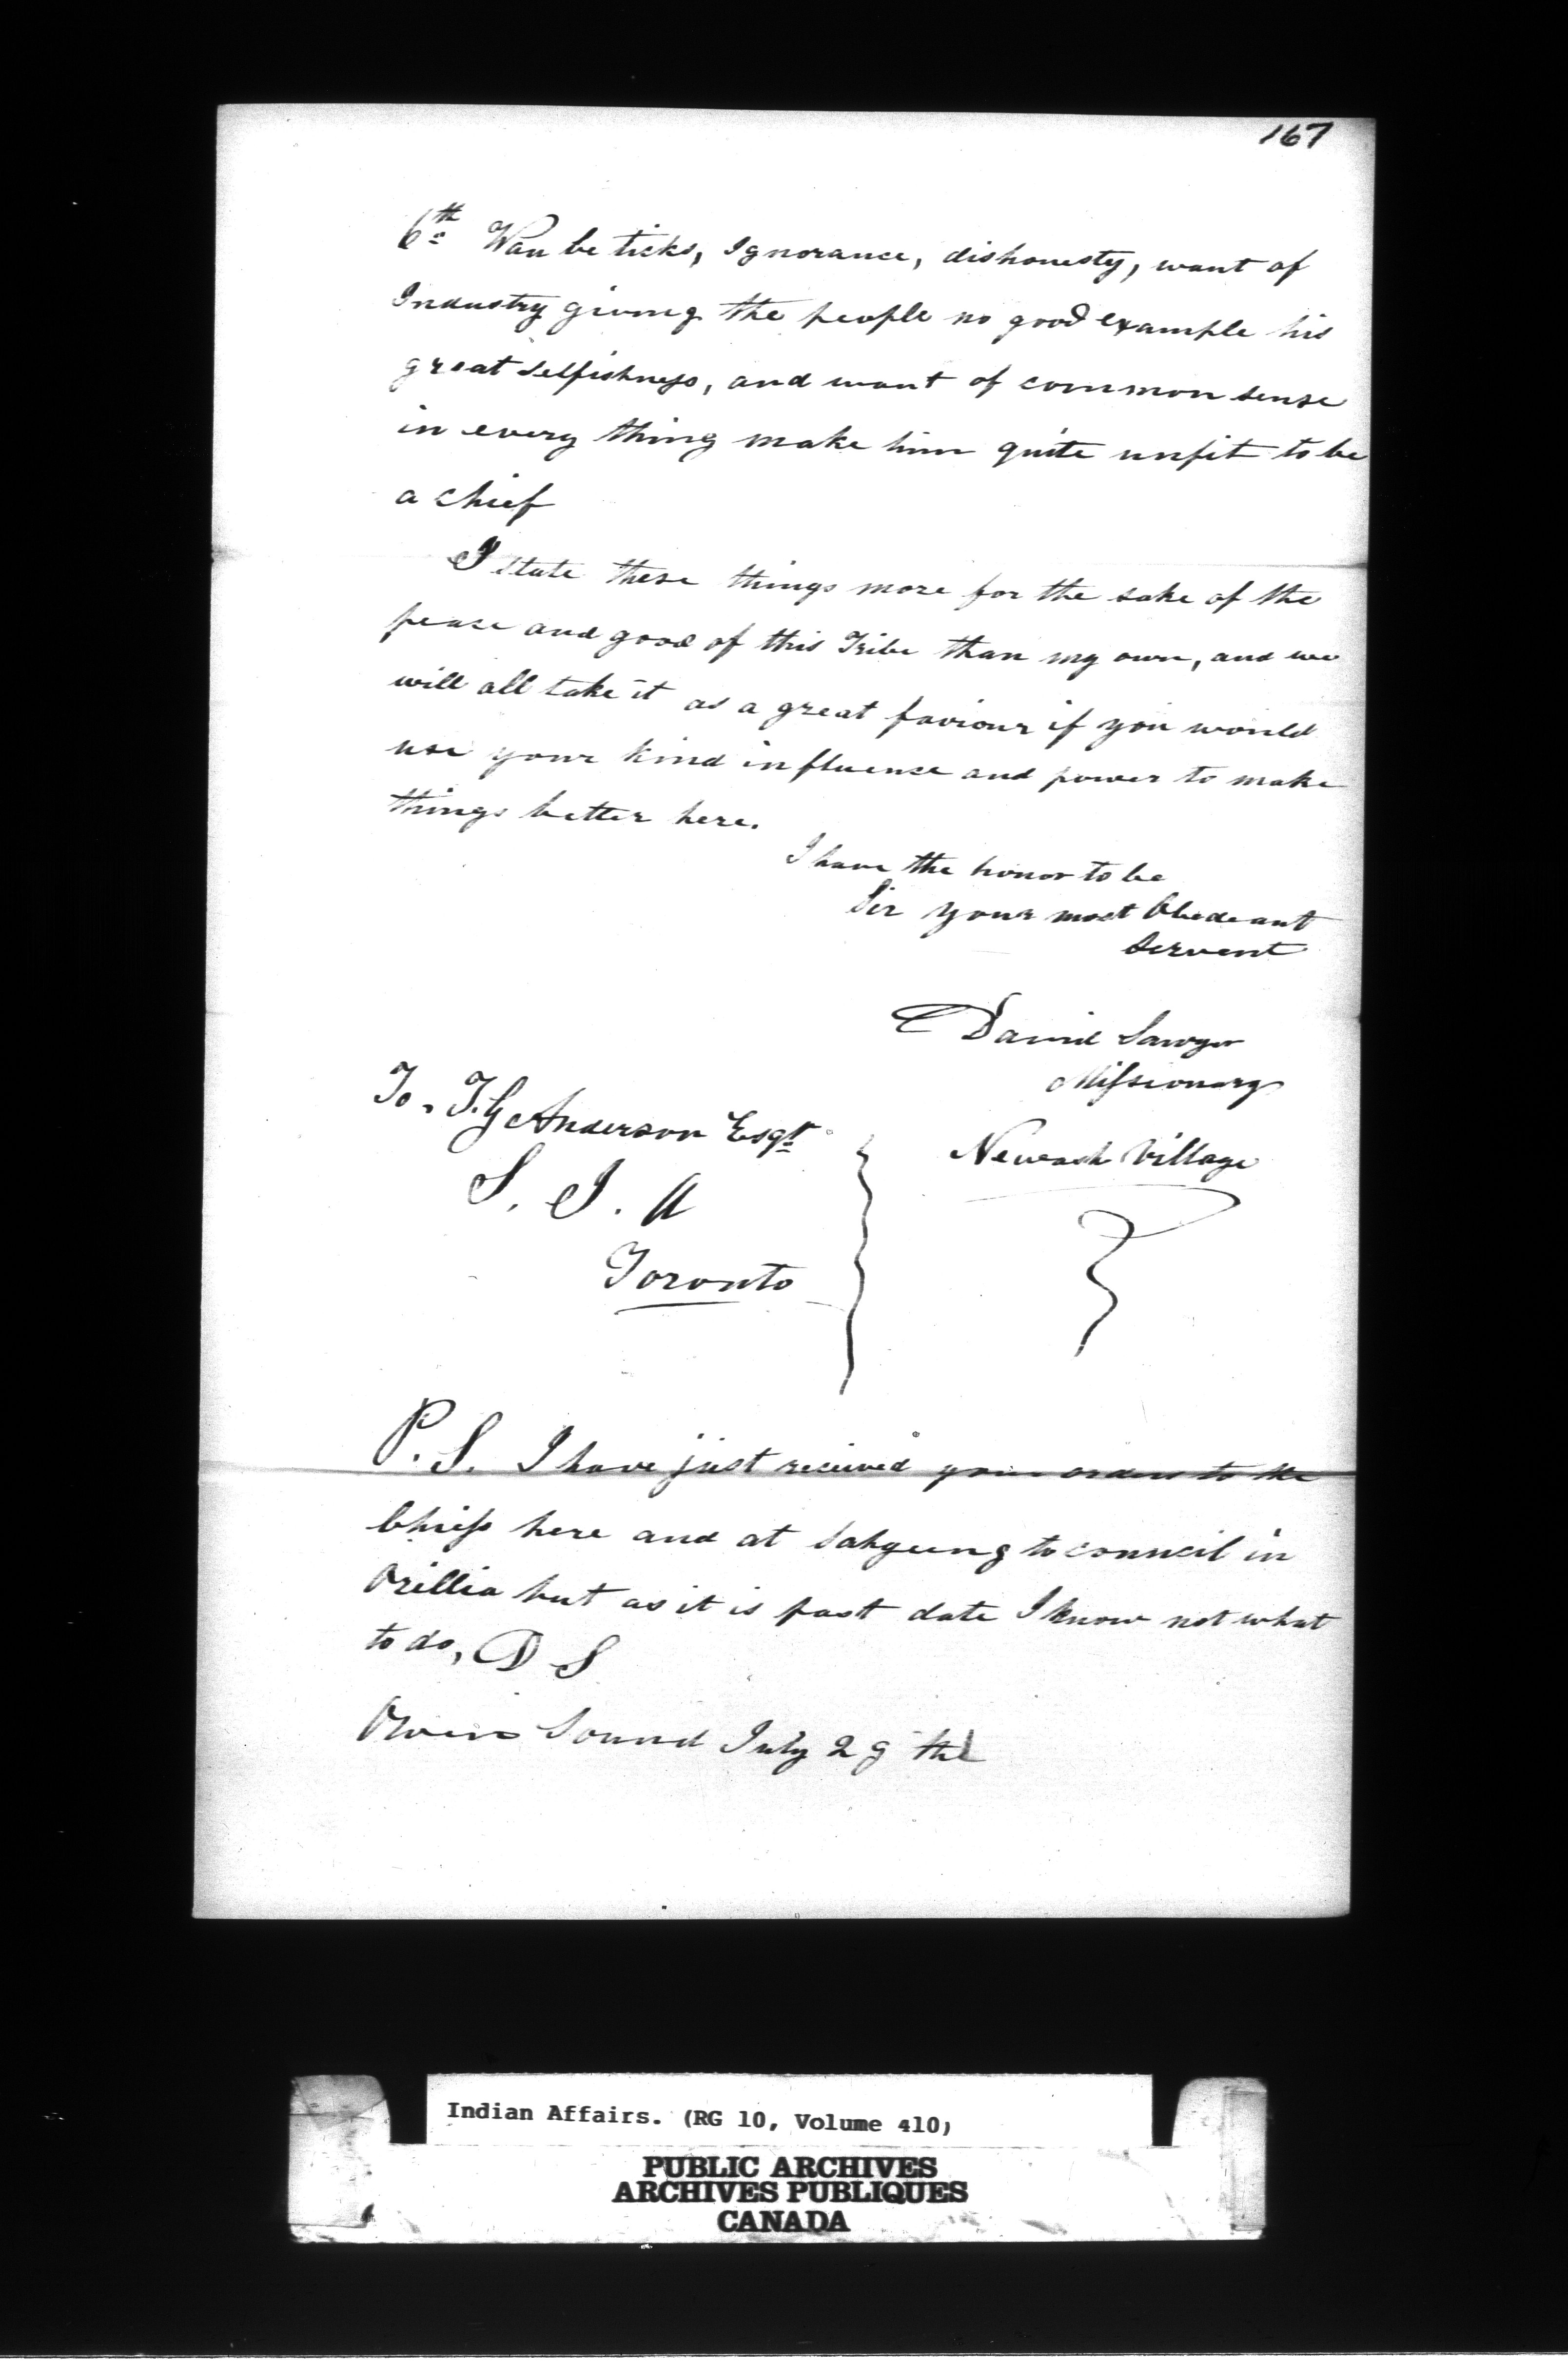 167
6th Wau be ticks, Ignorance, dishonesty, want of
Industry giving the people no good example his
great selfishness, and want of common sense
in every thing make him quite unfit to be
a chief
I state these things more for the sake of the
pease and good of this Tribe than my own, and we
will all take it as a great faviour if you would
use your kind influense and power to make
things better here.
I have the honor to be
Sir your most Obedeant
Servent
David Sawyer
Missionary
To. T.G Anderson Esqr
S. I. A
Toronto
Newash Village
P. S. I have just received your orders to the
Chiefs here and at Sahgeeng to council in
Orillia but as it is past date I know not what
to do, D S
Owens Sound July 29 the
Indian Affairs. (RG 10, Volume 410)
PUBLIC ARCHIVES
ARCHIVES PUBLIQUES
CANADA